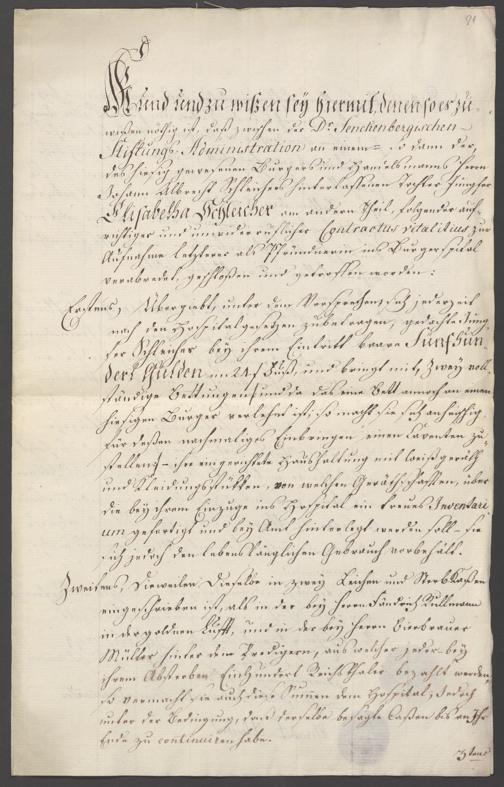 21
Kund und zu wißen sey hiermit, denen so es zu
wißen nöthig ist, daß zwischen der Dr. Senckenbergischen
Stiftungs-Administration an einem= so dann der,
des hiesig gewesenen Burgers und Handelsmanns Herrn
Johann Albrecht Schleichers hinterlassenen Tochter Jungfer
Elisabetha Schleicher am andern Theil, folgender auf-
richtiger und unwiderruflicher Contractus vitalitius zur
Aufnahme letzterer als Pfründnerin ins Burgerspital
verabredet, geschloßen und getroffen worden:
Erstens, Übergiebt, unter dem Versprechen, sich jederzeit
nach den Hospitalgesetzen zu betragen, gedachte Jung
fer Schleicher bey ihrem Eintritt baare Fünfhun
dert Gulden im 24 f Fuß, und bringt mit, zwey voll-
ständige Bettungen, und da das eine Bett annoch an einen
hiesigen Burger verlehnt ist, so macht sie sich anheischig
für deßen nachmaliges Einbringen einen Caventen zu
stellen, ihre eingerichtete Haushaltung mit Weißgeräth
und Kleidungsstükken, von welchen Geräthschaften, über
die bey ihrem Einzuge ins Hospital ein treues Inventari
um gefertigt und bey Amt hinterlegt werden soll - sie
sich jedoch den lebenslänglichen Gebrauch vorbehält.
Zweitens, Dieweilen Dieselbe in zwey Leichen und Sterb Kaßen
eingeschrieben ist, als in der bey Herrn Fändrich Kullmann
in der goldnen Lufft, und in der bey Herrn Bierbrauer
Müller hinter den Predigern, aus welcher jeder bey
ihrem Absterben Einhundert Reichsthaler bezahlt werden,
so vermacht sie auch diese Summen dem Hospital, jedoch
unter der Bedingung, daß derselbe besagte Caßen bis an Ihr
Ende zu continuiren habe.
3tens